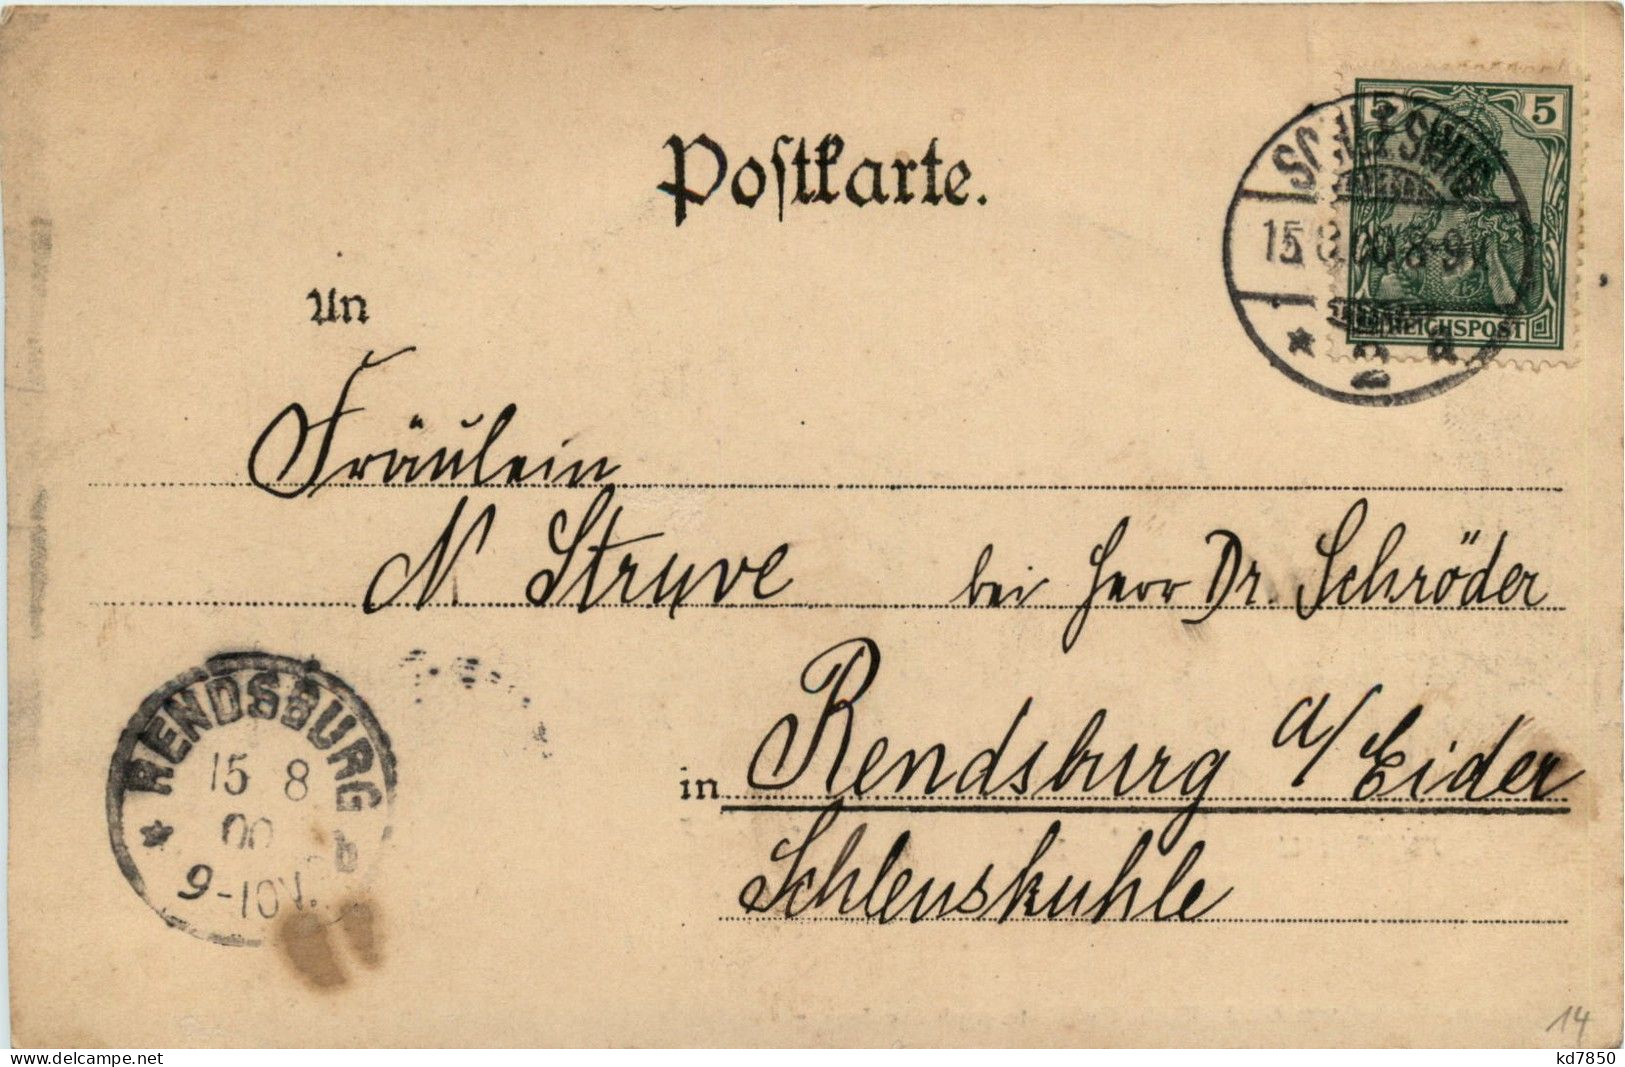 Postkarte.
5 5
REICHSPOST
SCHLESWIG
15.8.00.8-9V.
* 2 a
An
Fräulein
N Struve bei Herr Dr. Schröder
in Rendsburg a/Eider
Schleuskuhle
RENDSBURG
15 8
00
9-10V.
* b
14
delcampe.net
kd7850